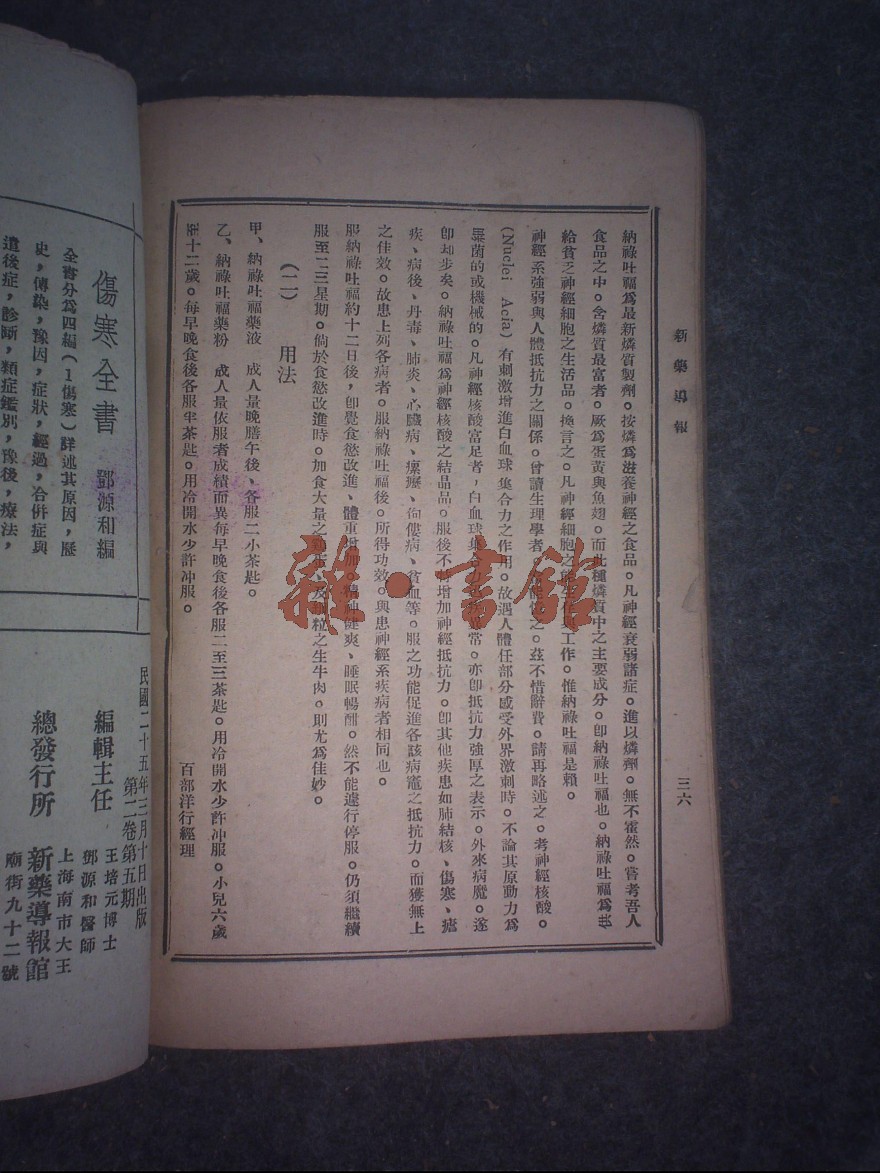 新藥導報
三六
納祿吐福爲最新燐質製劑。按燐爲滋養神經之食品。凡神經衰弱諸症。進以燐劑。無不霍然。嘗考吾人
食品之中。含燐質最富者。厥爲蛋黃與魚翅。而此種燐質中之主要成分。卽納祿吐福也。納祿吐福爲供
給貧乏神經細胞之生活品。換言之。凡神經細胞之能生存與工作。惟納祿吐福是賴。
神經系強弱與人體抵抗力之關係。曾讀生理學者。茲不惜辭費。請再略述之。考神經核酸。
(Nuclei Acia)有刺激增進白血球集合力之作用。故遇人體任部分感受外界激刺時。不論其原動力爲
黴菌的或機械的。凡神經核酸富足者，白血球集合力常。亦卽抵抗力強厚之表示。外來病魔。遂
卽却步矣。納祿吐福爲神經核酸之結晶品。服後不特增加神經抵抗力。卽其他疾患如肺結核、傷寒、瘧
疾、病後、丹毒、肺炎、心臟病、瘰癧、佝僂病、貧血等。服之功能促進各該病竈之抵抗力。而獲無上
之佳效。故患上列各病者。服納祿吐福後。所得功效。與患神經系疾病者相同也。
服納祿吐福約十二日後，卽覺食慾改進、體重增加、精神健爽、睡眠暢酣。然不能遽行停服。仍須繼續
服至二三星期。倘於食慾改進時。加食大量之雞蛋、及粒之生牛肉。則尤爲佳妙。
(二)　用法
甲、納祿吐福藥液　成人量晚膳午後、各服二小茶匙。
乙、納祿吐福藥粉　成人量依服者成績而異每早晚食後各服二至三茶匙。用冷開水少許冲服。小兒六歲
至十二歲。每早晚食後各服半茶匙。用冷開水少許冲服。
百部洋行經理
雜·書館
傷寒全書　鄧源和編
全書分爲四編(1傷寒)詳述其原因，歷
史，傳染，豫因，症狀，經過，合併症與
遺後症，診斷，類症鑑別，豫後，療法，
民國二十五年三月十日出版
第二卷第五期
編輯主任　王培元博士
鄧源和醫師
總發行所　新藥導報館
上海南市大王
廟街九十二號